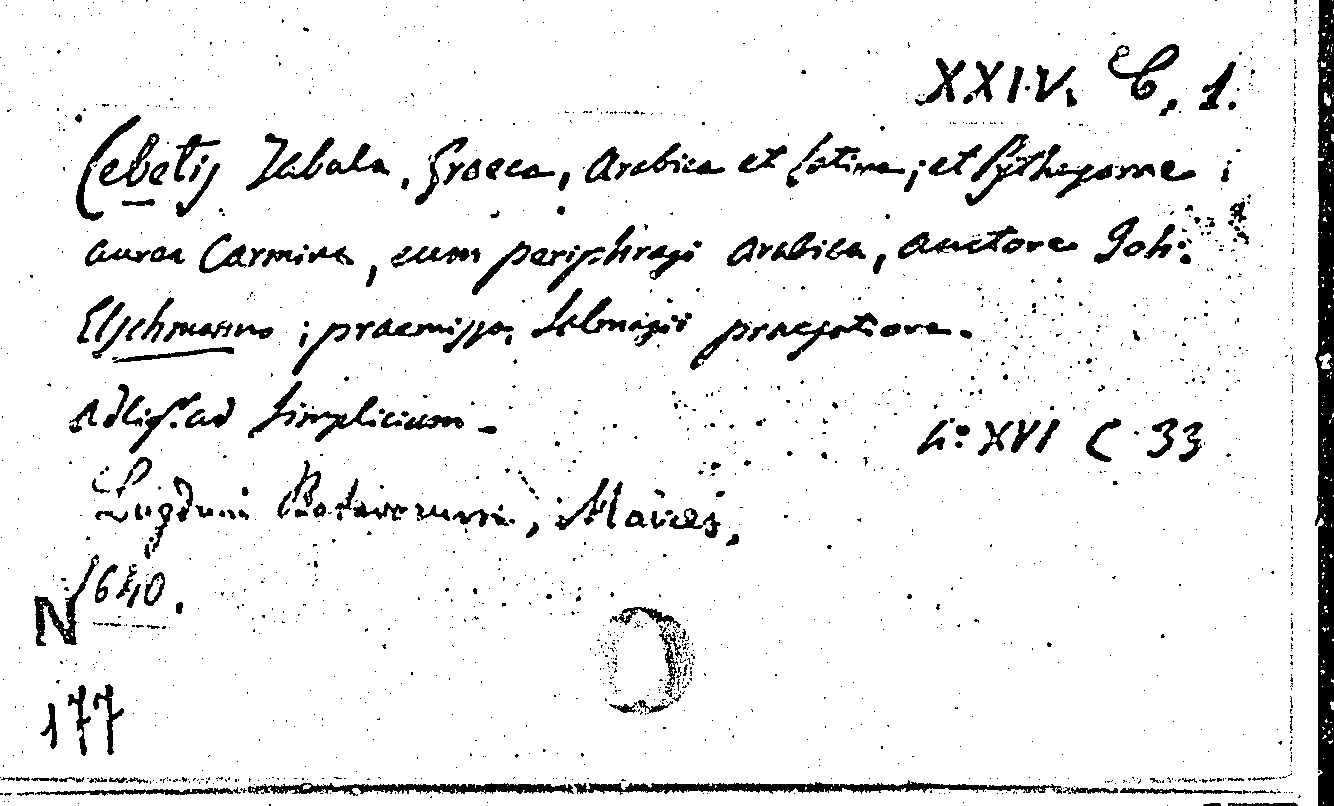 XXIV. C. 1.
Cebetis Tabula, Graeca, Arabica et Latina; et Pythagorae
aurea Carmina, cum periphrasi Arabica, auctore Joh:
Elschmanno; praemissa Salmasii praefatione.
Adligat. ad Simplicium.
4º XVI C 33
Lugduni Batavorum, Maires,
1640.
N
177